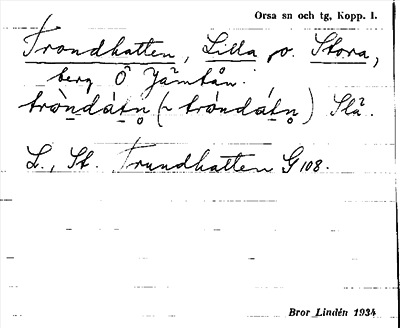 Orsa sn och tg, Kopp. l.
Trondhatten, Lilla o. Stora,
berg Ö Jämtån.
tròndátn̥ (~ tróndátn̥) Slä.
L., St. Trundhatten G 108.
Bror Lindén 1934